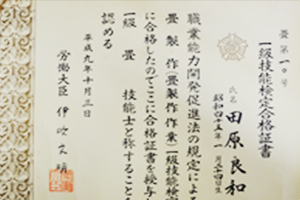 畳第一〇号
一級技能検定合格証書
氏名 田原良和
昭和四十五年一月二十四日生
職業能力開発促進法の規定による
畳製作(畳製作作業)一級技能検定
に合格したのでここに合格証書を授与し
一級畳技能士と称することを
認める
平成九年十月三日
労働大臣 伊吹文明